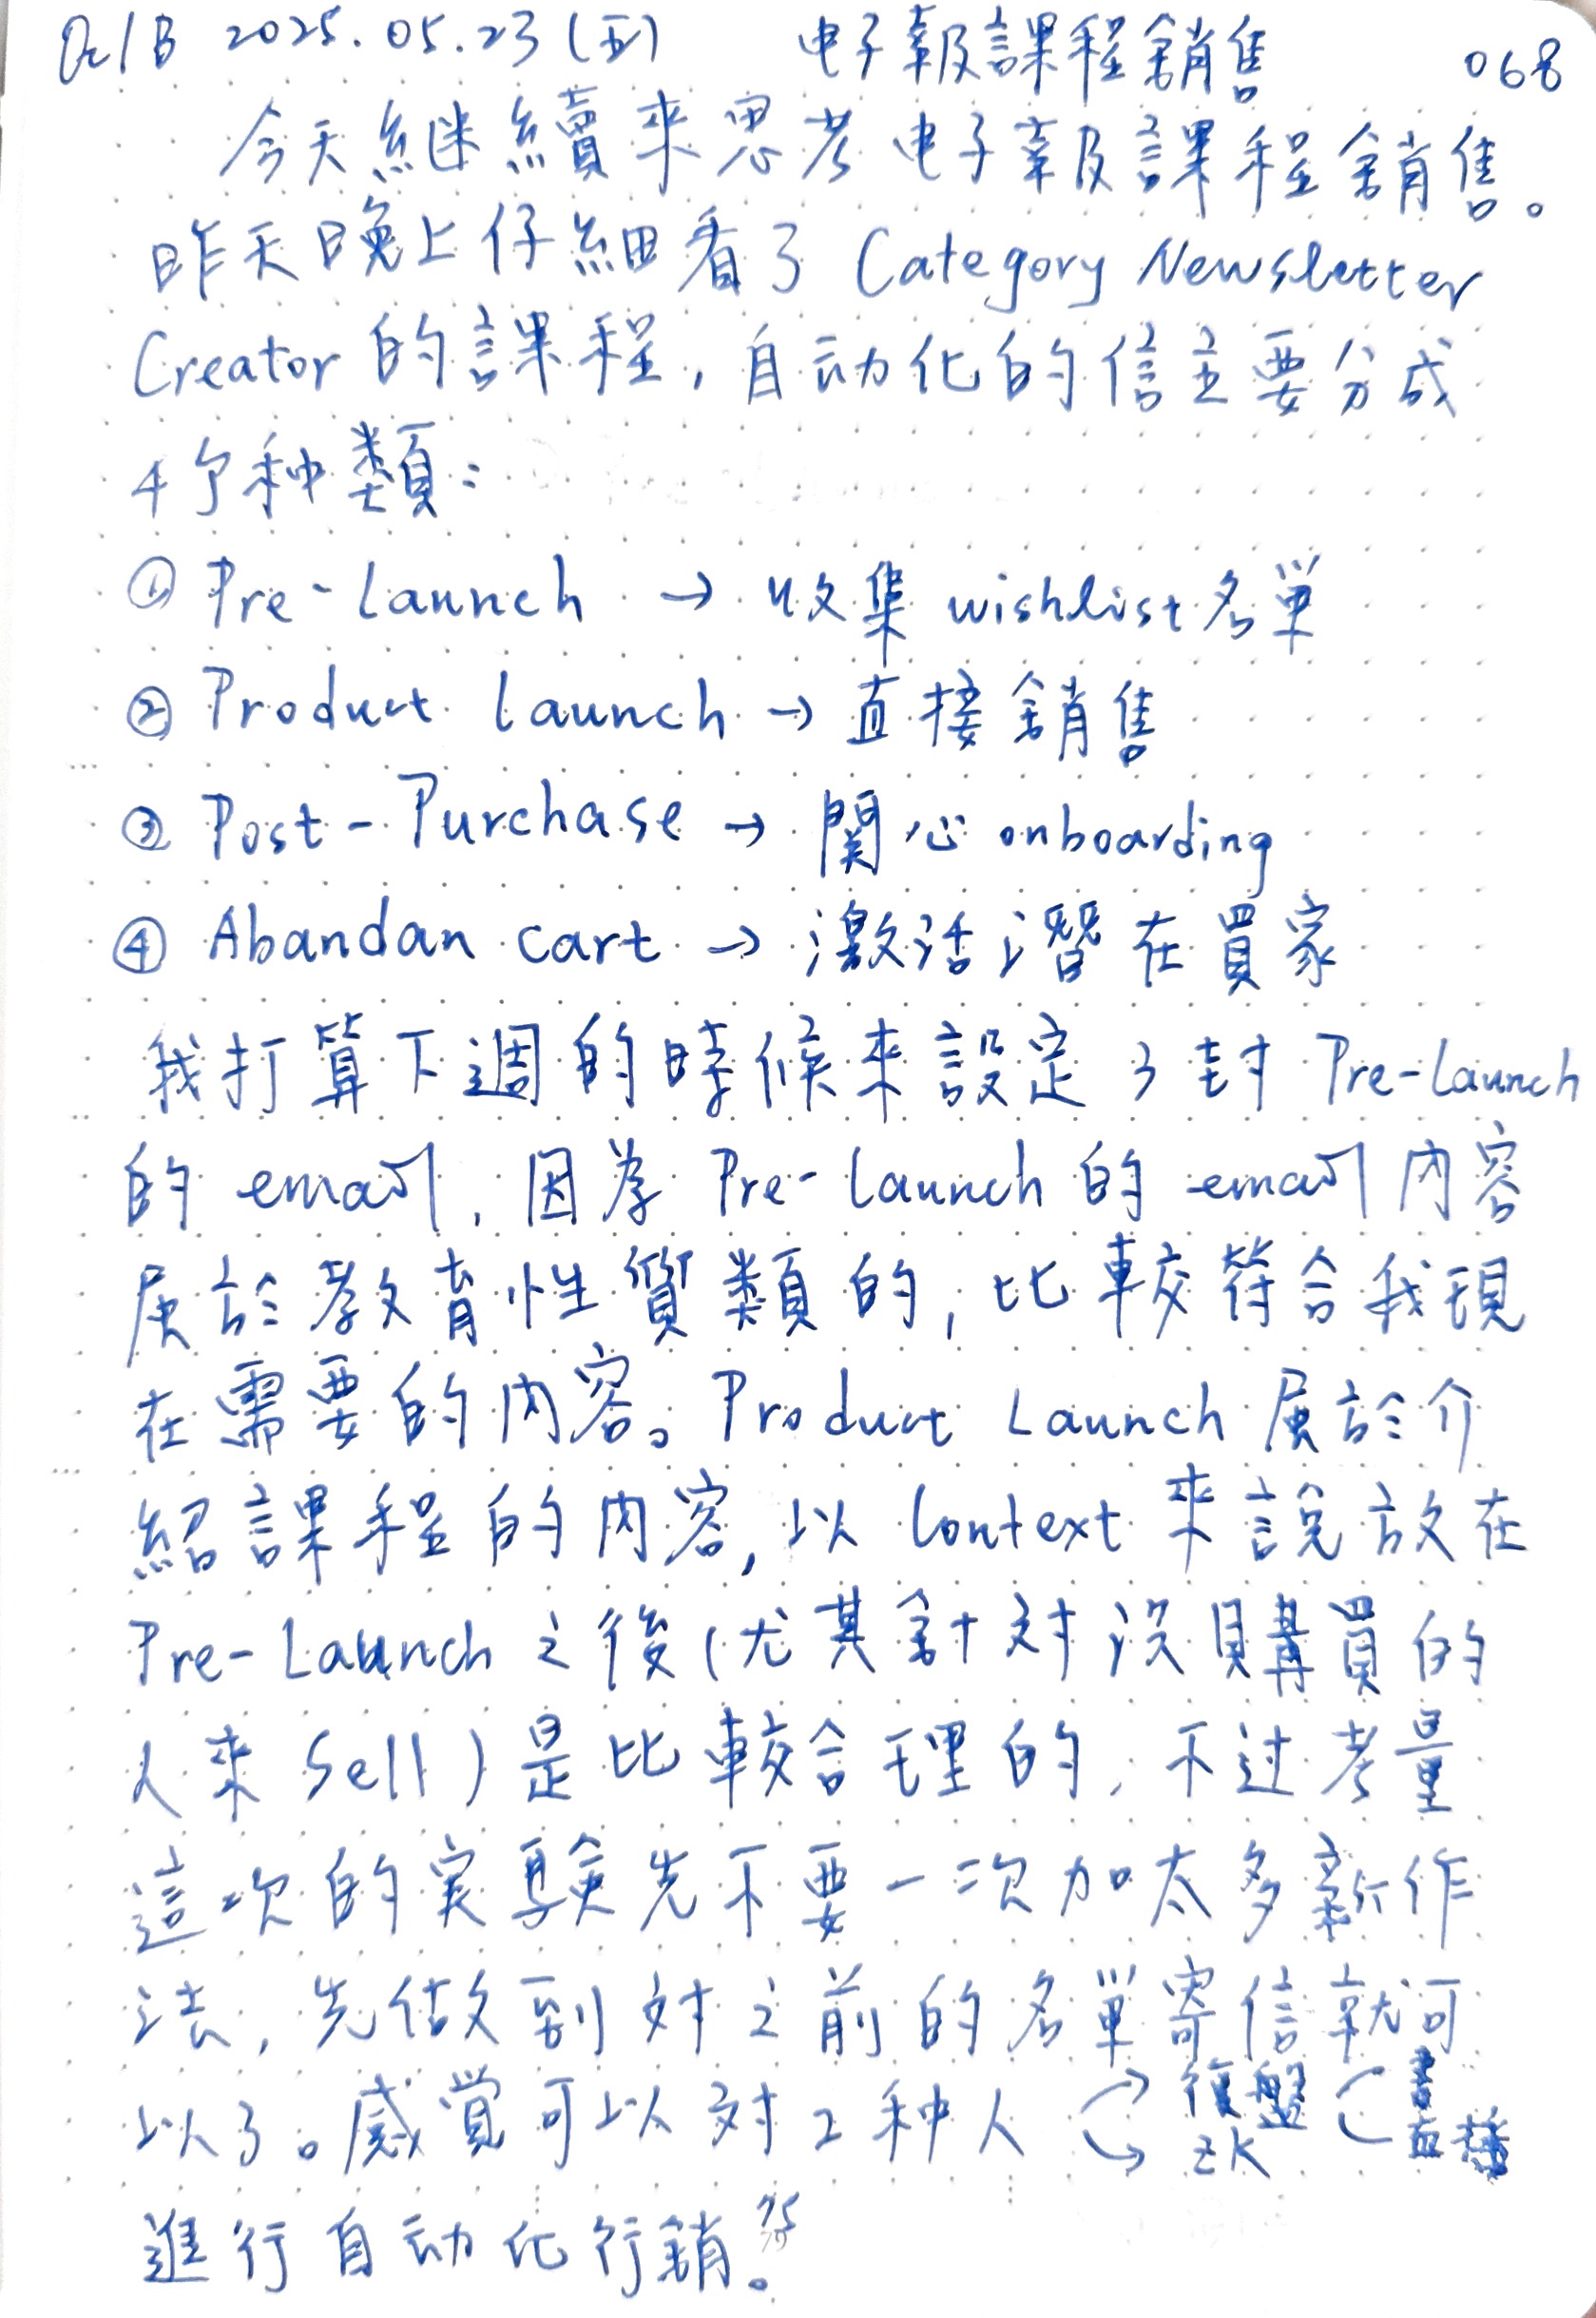 2025.05.23 (五) 电子報課程銷售 068
今天継續來思考电子報課程銷售。
昨天晚上仔細看了 Category Newsletter
Creator 的課程，自动化的信主要分成
4个种類：
① Pre-Launch → 收集 wishlist 名單
② Product Launch → 直接銷售
③ Post-Purchase → 関心 onboarding
④ Abandan cart → 激活潛在買家
我打算下週的時候來設定 3 封 Pre-Launch
的 email，因為 Pre-Launch 的 email 內容
屬於教育性質類的，比較符合我現
在需要的內容。Product Launch 屬於介
紹課程的內容，以 Context 來說放在
Pre-Launch 之後（尤其針对沒購買的
人來 Sell）是比較合理的，不过考量
這次的実驗先不要一次加太多新作
法，先做到对之前的名單寄信就可
以了。感覚可以对 2 种人 → 復盤
→ ZK
進行自动化行銷。